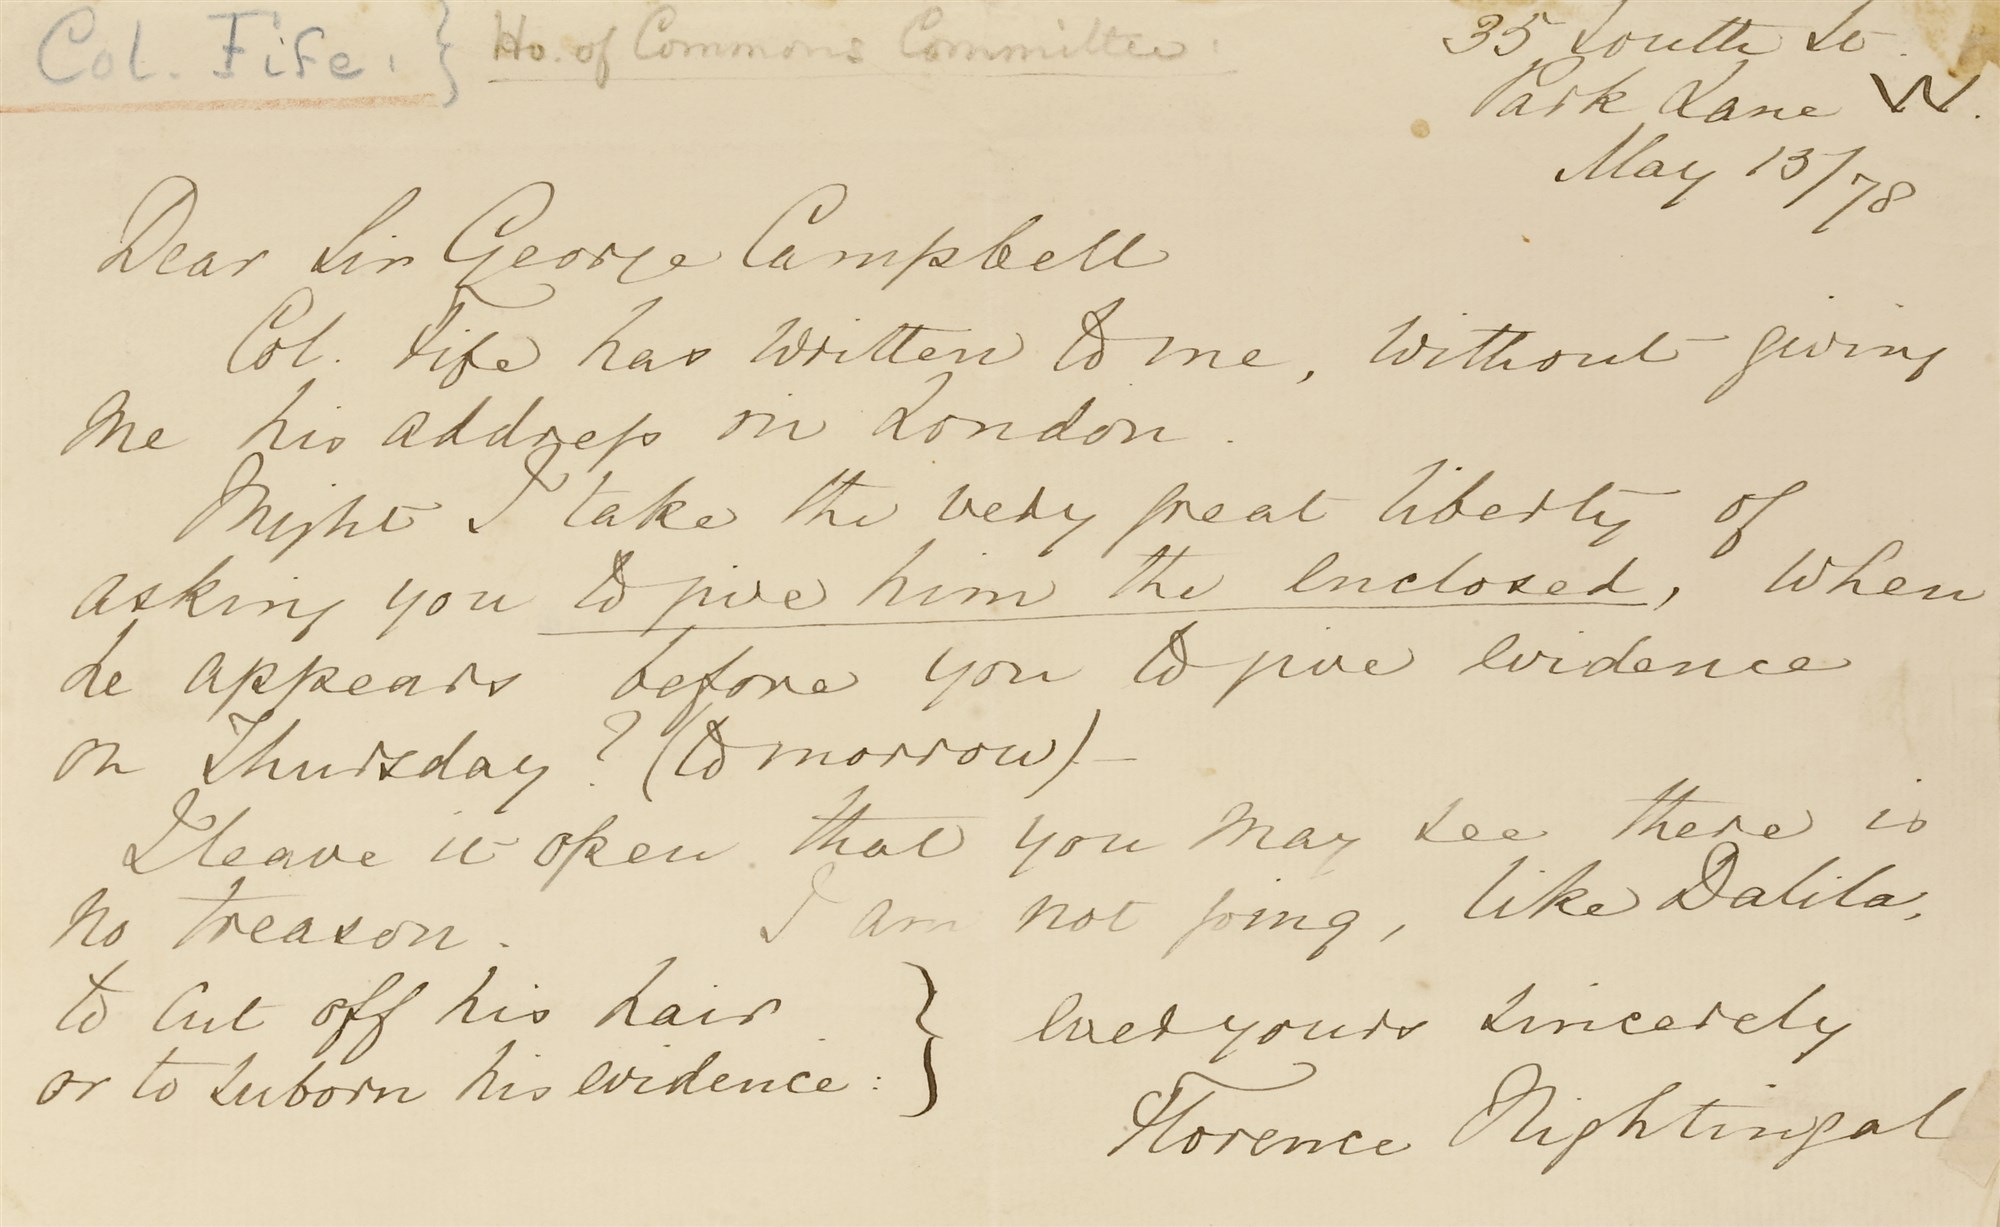 Col. Fife. } Ho. of Commons Committee:
35 South St.
Park Lane W.
May 15/78
Dear Sir George Campbell
Col. Fife has written to me, without giving
me his address in London.
Might I take the very great liberty of
asking you to give him the enclosed, when
he appears before you to give evidence
on Thursday? (tomorrow) -
I leave it open that you may see there is
no treason. I am not going, like Dalila,
to cut off his hair
or to suborn his evidence: }
ever yours sincerely
Florence Nightingal